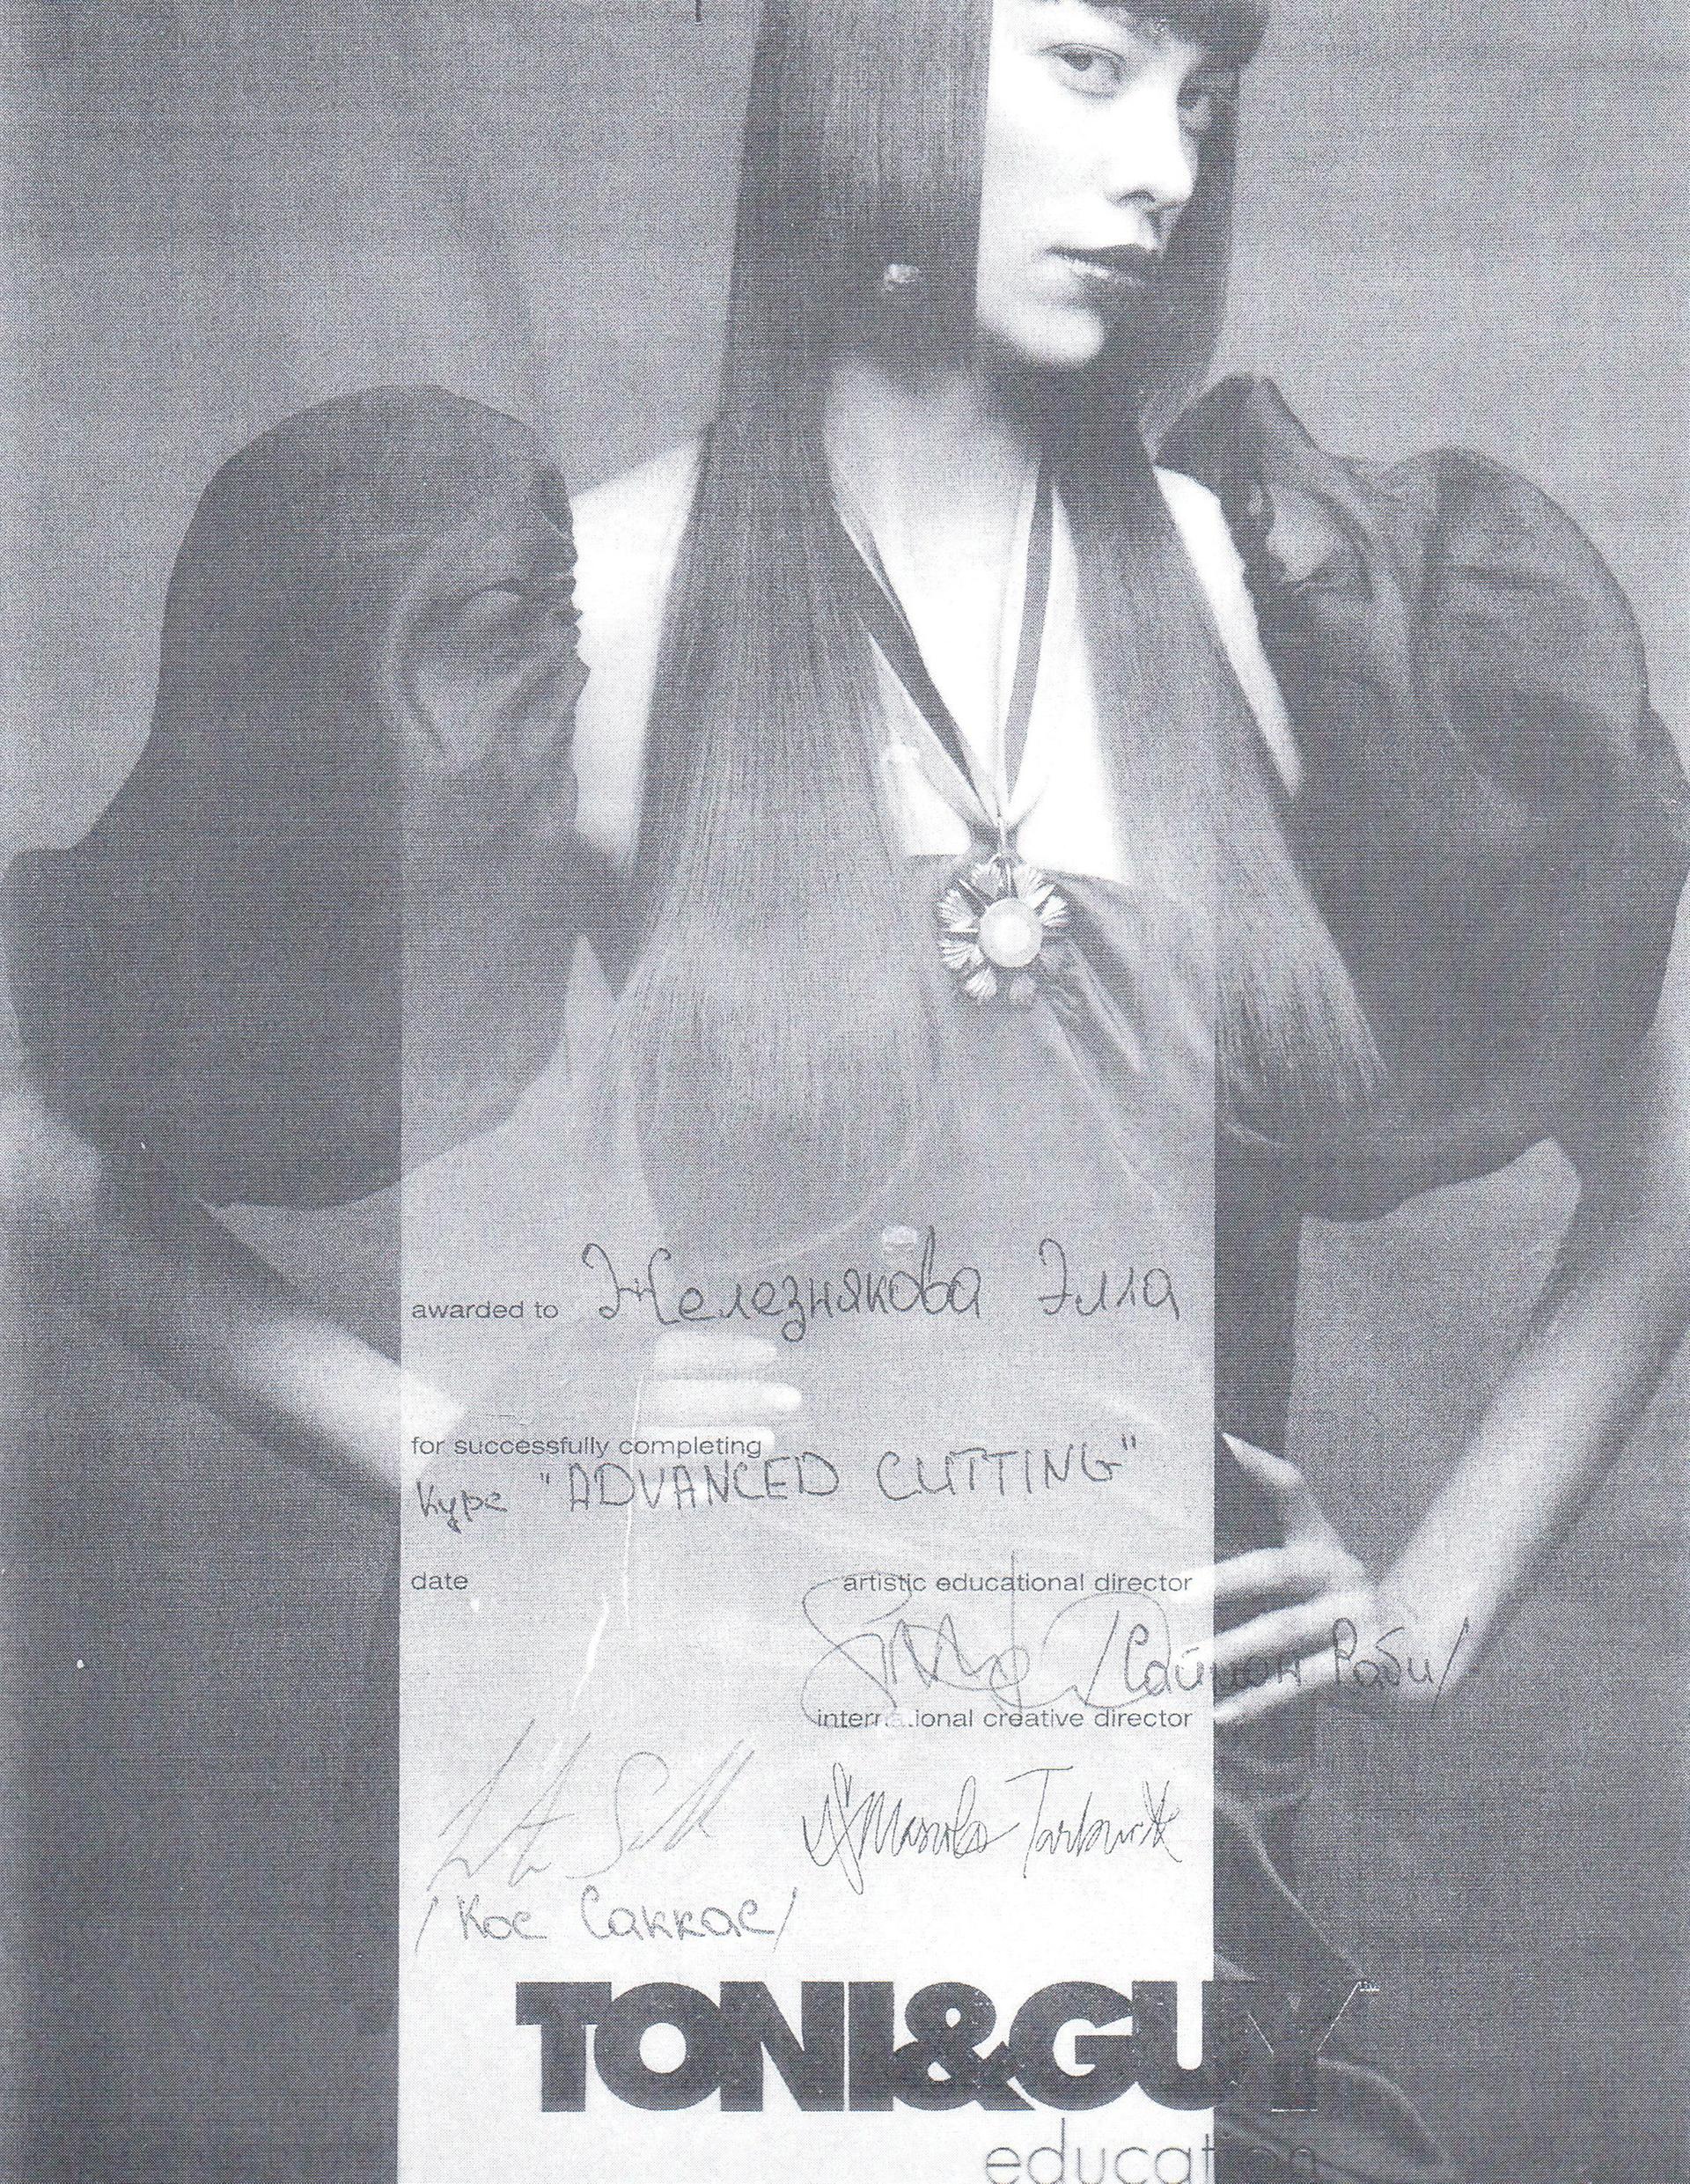 awarded to Железнякова Элла
for successfully completing
курс "ADVANCED CUTTING"
date
artistic educational director
/Саймон Раби/
international creative director
/Кос Саккас/
TONI&GUY
education